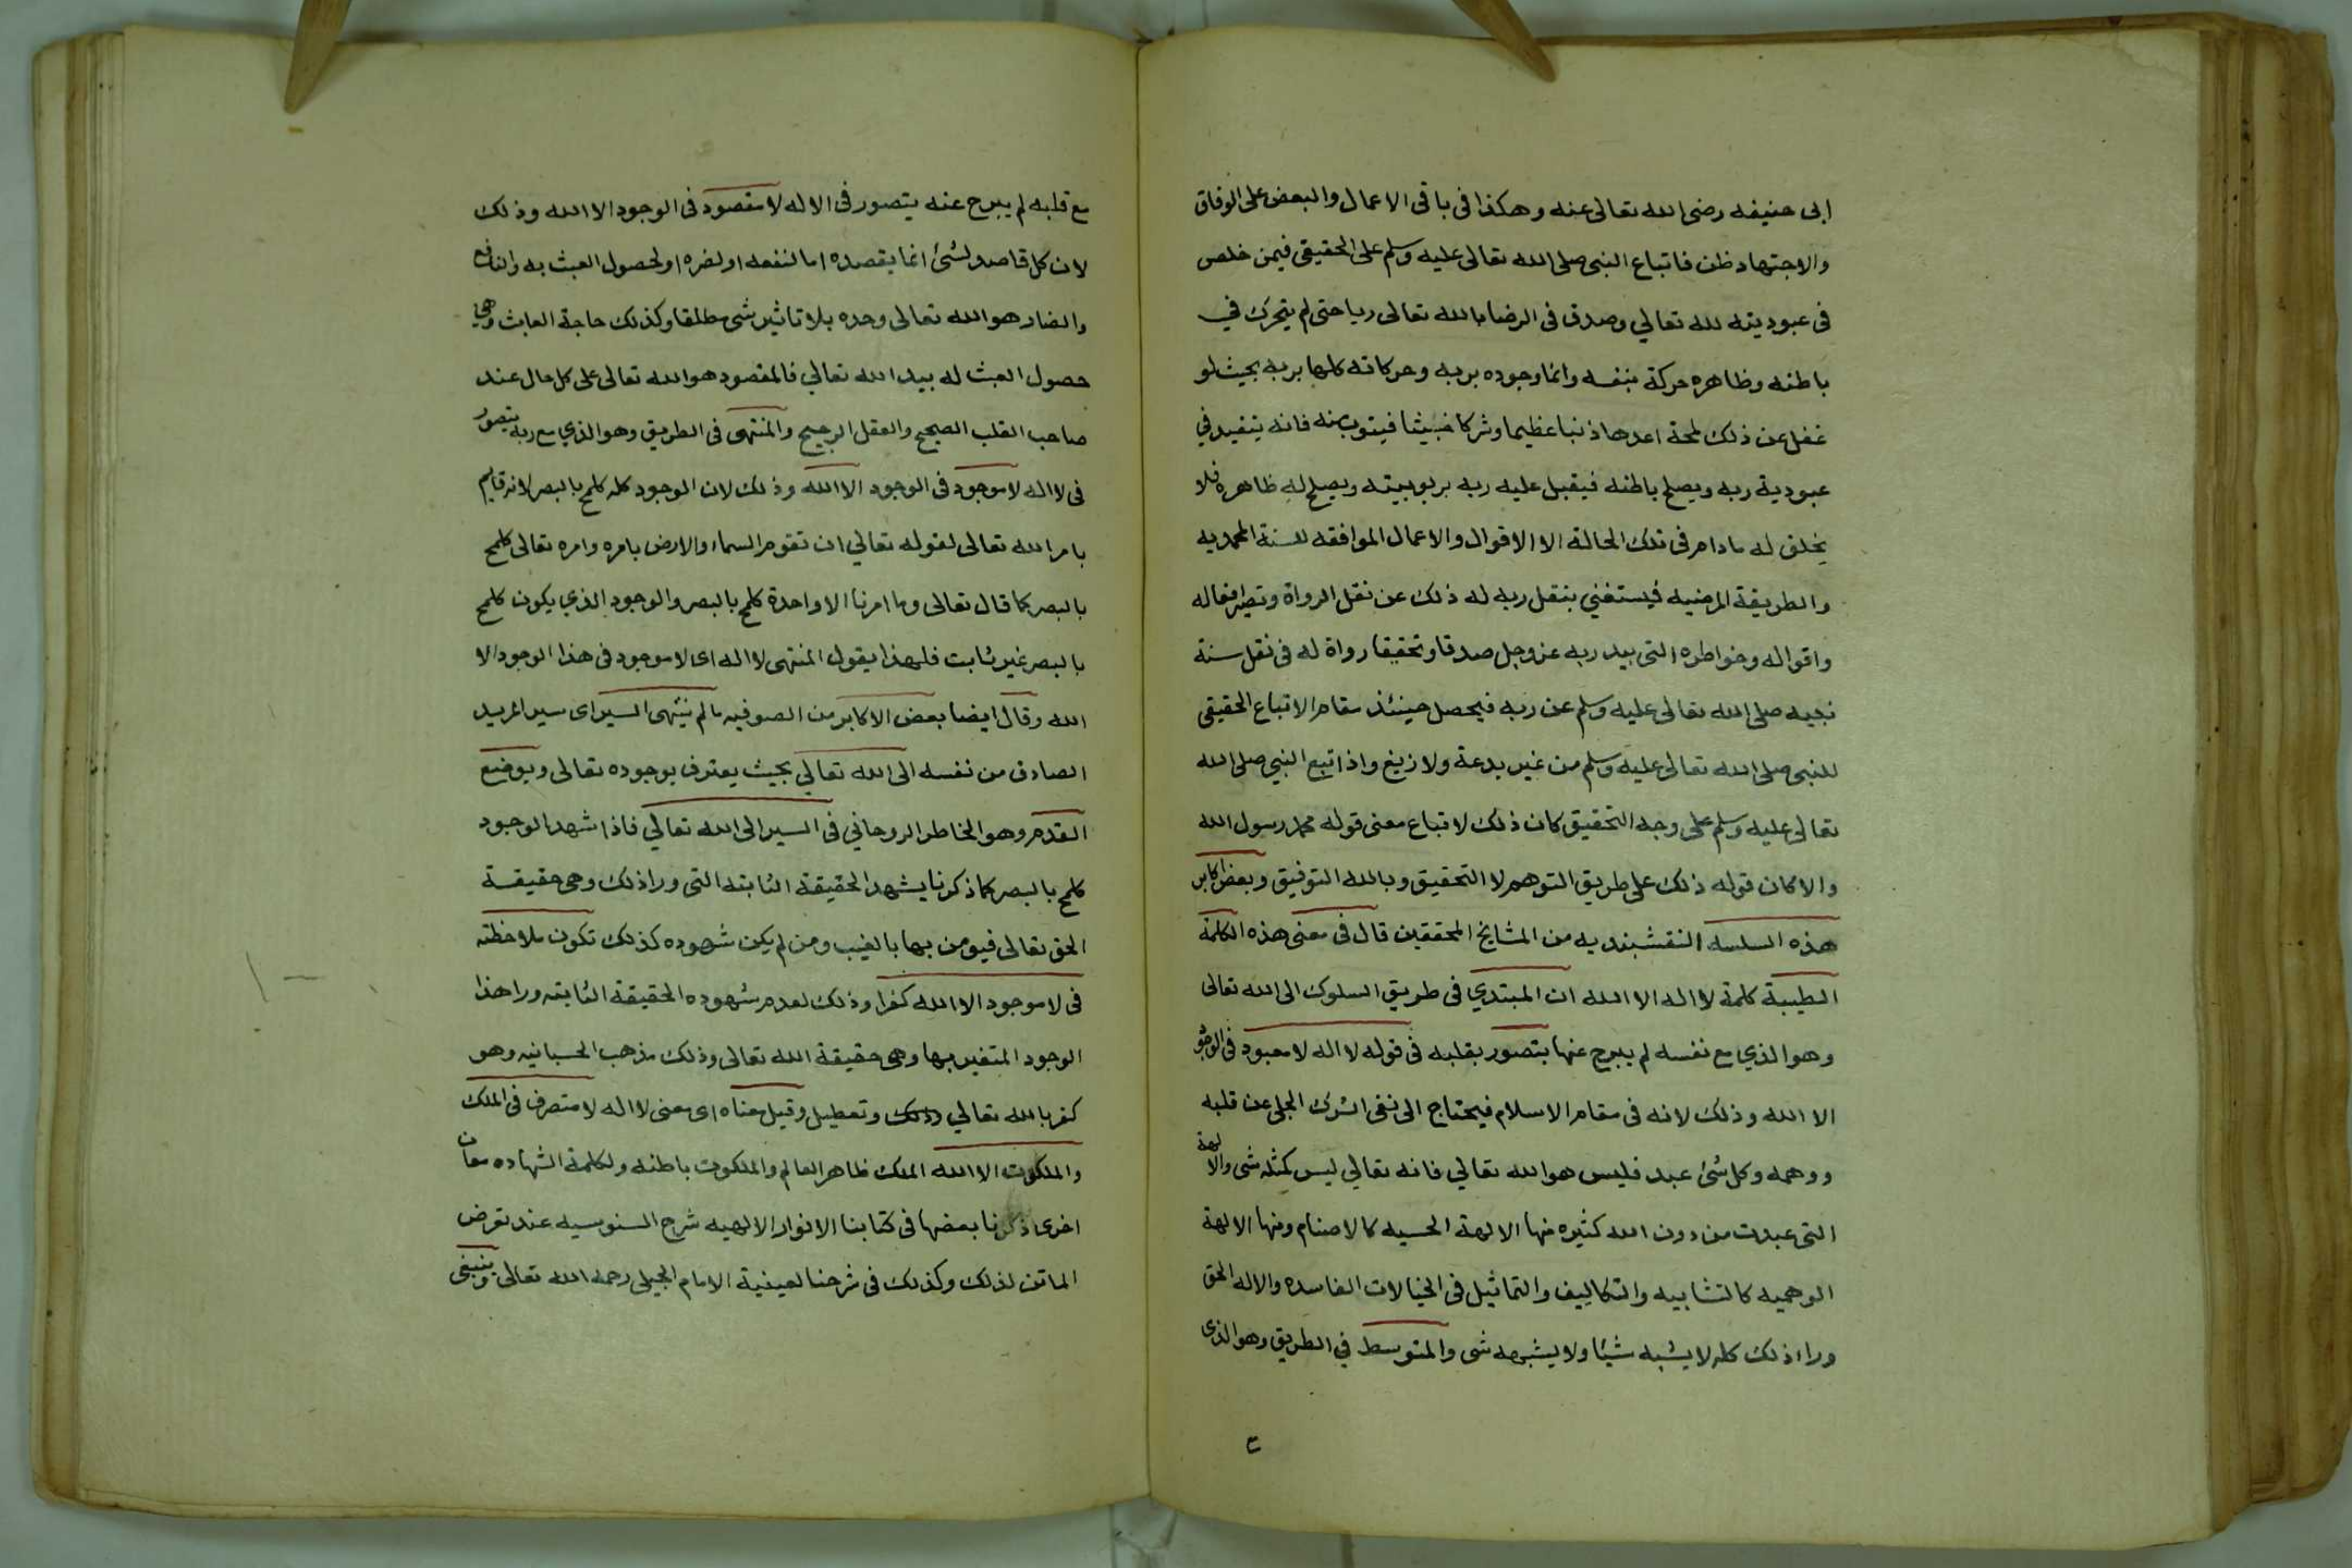 ابى حنيفه رضى الله تعالى عنه وهكذا فى باقى الاعمال والبعض على الوفاق
والاجتهاد ظن فاتباع النبى صلى الله تعالى عليه وسلم على الحقيقى فيمن خلص
فى عبوديته لله تعالي وصدق فى الرضا بالله تعالى ربا حتى لم يتحرك في
باطنه وظاهره حركة بنفسه وانما وجوده بربه وحركاته كلها بربه بحيث لو
غفل عن ذلك لمحة اعدها ذنبا عظيما وشركا خبيثا فيتوب منه فانه يتقيد في
عبودية ربه ويصلح باطنه فيقبل عليه ربه بربوبيته ويصلح له ظاهره فلا
يخلق له مادام فى تلك الحالة الا الاقوال والاعمال الموافقه للسنة المحمديه
والطريقة المرضيه فيستغني بنقل ربه له ذلك عن نقل الرواة وتصير افعاله
واقواله وخواطره التى بيد ربه عزوجل صدقا وتحقيقا رواة له فى نقل سنة
نبيه صلى الله تعالى عليه وسلم عن ربه فيحصل حينئذ مقام الاتباع الحقيقى
للنبى صلى الله تعالى عليه وسلم من غير بدعة ولا زيغ واذا تبع النبي صلى الله
تعالى عليه وسلم على وجه التحقيق كان ذلك لاتباع معنى قوله محمد رسول الله
والا كان قوله ذلك على طريق التوهم لا التحقيق وبالله التوفيق وبعض اكابر
هذه السلسه النقشبنديه من المشايخ المحققين قال فى معنى هذه الكلمة
الطيبة كلمة لا اله الا الله ان المبتدي فى طريق السلوك الى الله تعالى
وهو الذي مع نفسه لم يبرح عنها يتصور بقلبه فى قوله لا اله لا معبود فى الوجود
الا الله وذلك لانه فى مقام الاسلام فيحتاج الى نفى الشرك الجلى عن قلبه
ووهمه وكل شئ عبد فليس هو الله تعالي فانه تعالي ليس كمثله شى والالهة
التى عبدت من دون الله كثيره منها الالهة الحسيه كالاصنام ومنها الالهة
الوهميه كالتشابيه والتكاليف والتماثيل فى الخيالات الفاسده والاله الحق
وراء ذلك كله لا يشبه شيئا ولا يشبهه شى والمتوسط في الطريق وهو الذى
مع قلبه لم يبرح عنه يتصور فى الاله لا مقصود فى الوجود الا الله وذلك
لان كل قاصد لشئ انما يقصده اما لنفعه او لضره او لحصول العبث به والنافع
والضار هو الله تعالى وحده بلا تاثير شى مطلقا وكذلك حاجة العابث وهى
حصول العبث له بيد الله تعالي فالمقصود هو الله تعالى على كل حال عند
صاحب القلب الصحيح والعقل الرجيح والمنتهى فى الطريق وهو الذي مع ربه يتصور
فى لا اله لا موجود فى الوجود الا الله وذلك لان الوجود كله كلمح بالبصر لانه قايم
بامر الله تعالى لقوله تعالي ان تقوم السماء والارض بامره وامره تعالى كلمح
بالبصر كما قال تعالى وما امرنا الا واحدة كلمح بالبصر والوجود الذي يكون كلمح
بالبصر غير ثابت فلهذا يقول المنتهى لا اله اى لا موجود فى هذا الوجود الا
الله وقال ايضا بعض الاكابر من الصوفيه ما لم ينتهى السير اى سير المريد
الصادق من نفسه الى الله تعالي بحيث يعترف بوجوده تعالى وبوضع
القدم وهو الخاطر الروحاني فى السير الى الله تعالي فاذا شهد الوجود
كلمح بالبصر كما ذكرنا يشهد الحقيقة الثابته التى ورا ذلك وهى حقيقة
الحق تعالى فيومن بها بالغيب ومن لم يكن شهوده كذلك تكون ملاحظته
فى لا موجود الا الله كفرا وذلك لعدم شهوده الحقيقة الثابته ورا هذا
الوجود المتغير بها وهى حقيقة الله تعالى وذلك مذهب الحسبانيه وهو
كفر بالله تعالي وتعطيل وقيل معناه اى معنى لا اله لا متصرف فى الملك
والملكوت الا الله الملك ظاهر العالم والملكوت باطنه ولكلمة الشهاده معان
اخرى ذكرنا بعضها فى كتابنا الانوار الالهيه شرح السنوسيه عند تعرض
الماتن لذلك وكذلك فى شرحنا لعينية الامام الجيلى رحمه الله تعالى وينبغى